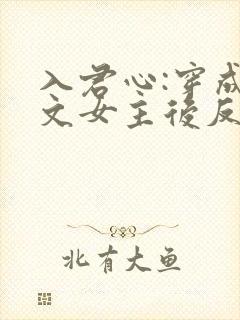 入君心:穿成
文女主后反
北有大鱼